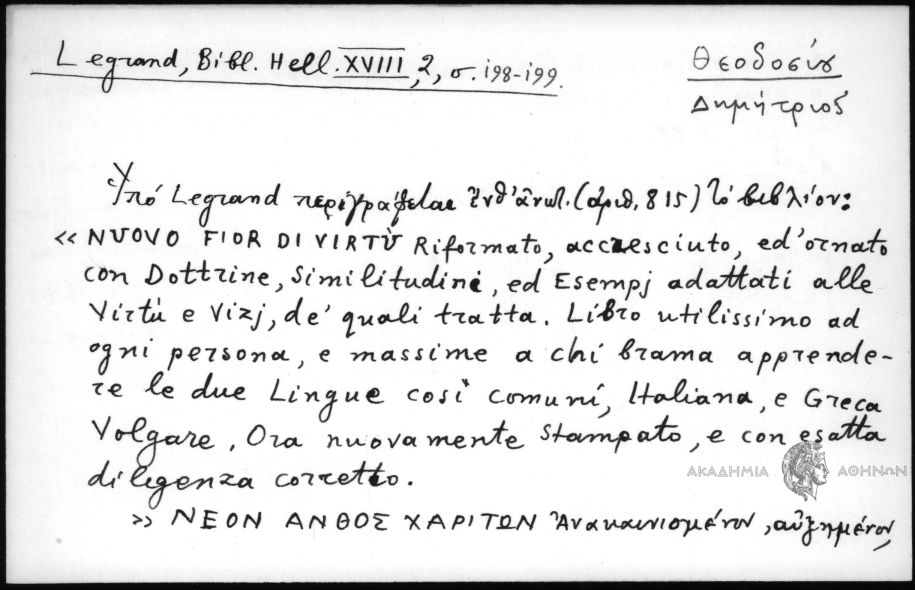 Legrand, Bibl. Hell. XVIII, 2, σ. 198-199.
Θεοδοσίου
Δημήτριος
Ὑπό Legrand περιγράφεται ἐνθ' ἀνωτ. (ἀριθ. 815) τό βιβλίον:
« NUOVO FIOR DI VIRTÙ Riformato, accresciuto, ed'ornato
con Dottrine, Similitudini, ed Esempj adattati alle
Virtù e Vizj, de' quali tratta. Libro utilissimo ad
ogni persona, e massime a chi brama apprende-
re le due Lingue così comuni, Italiana, e Greca
Volgare, Ora nuovamente Stampato, e con esatta
diligenza corretto.
ΑΚΑΔΗΜΙΑ ΑΘΗΝΩΝ
» ΝΕΟΝ ΑΝΘΟΣ ΧΑΡΙΤΩΝ Ἀνακαινισμένον, αὐξημένον,